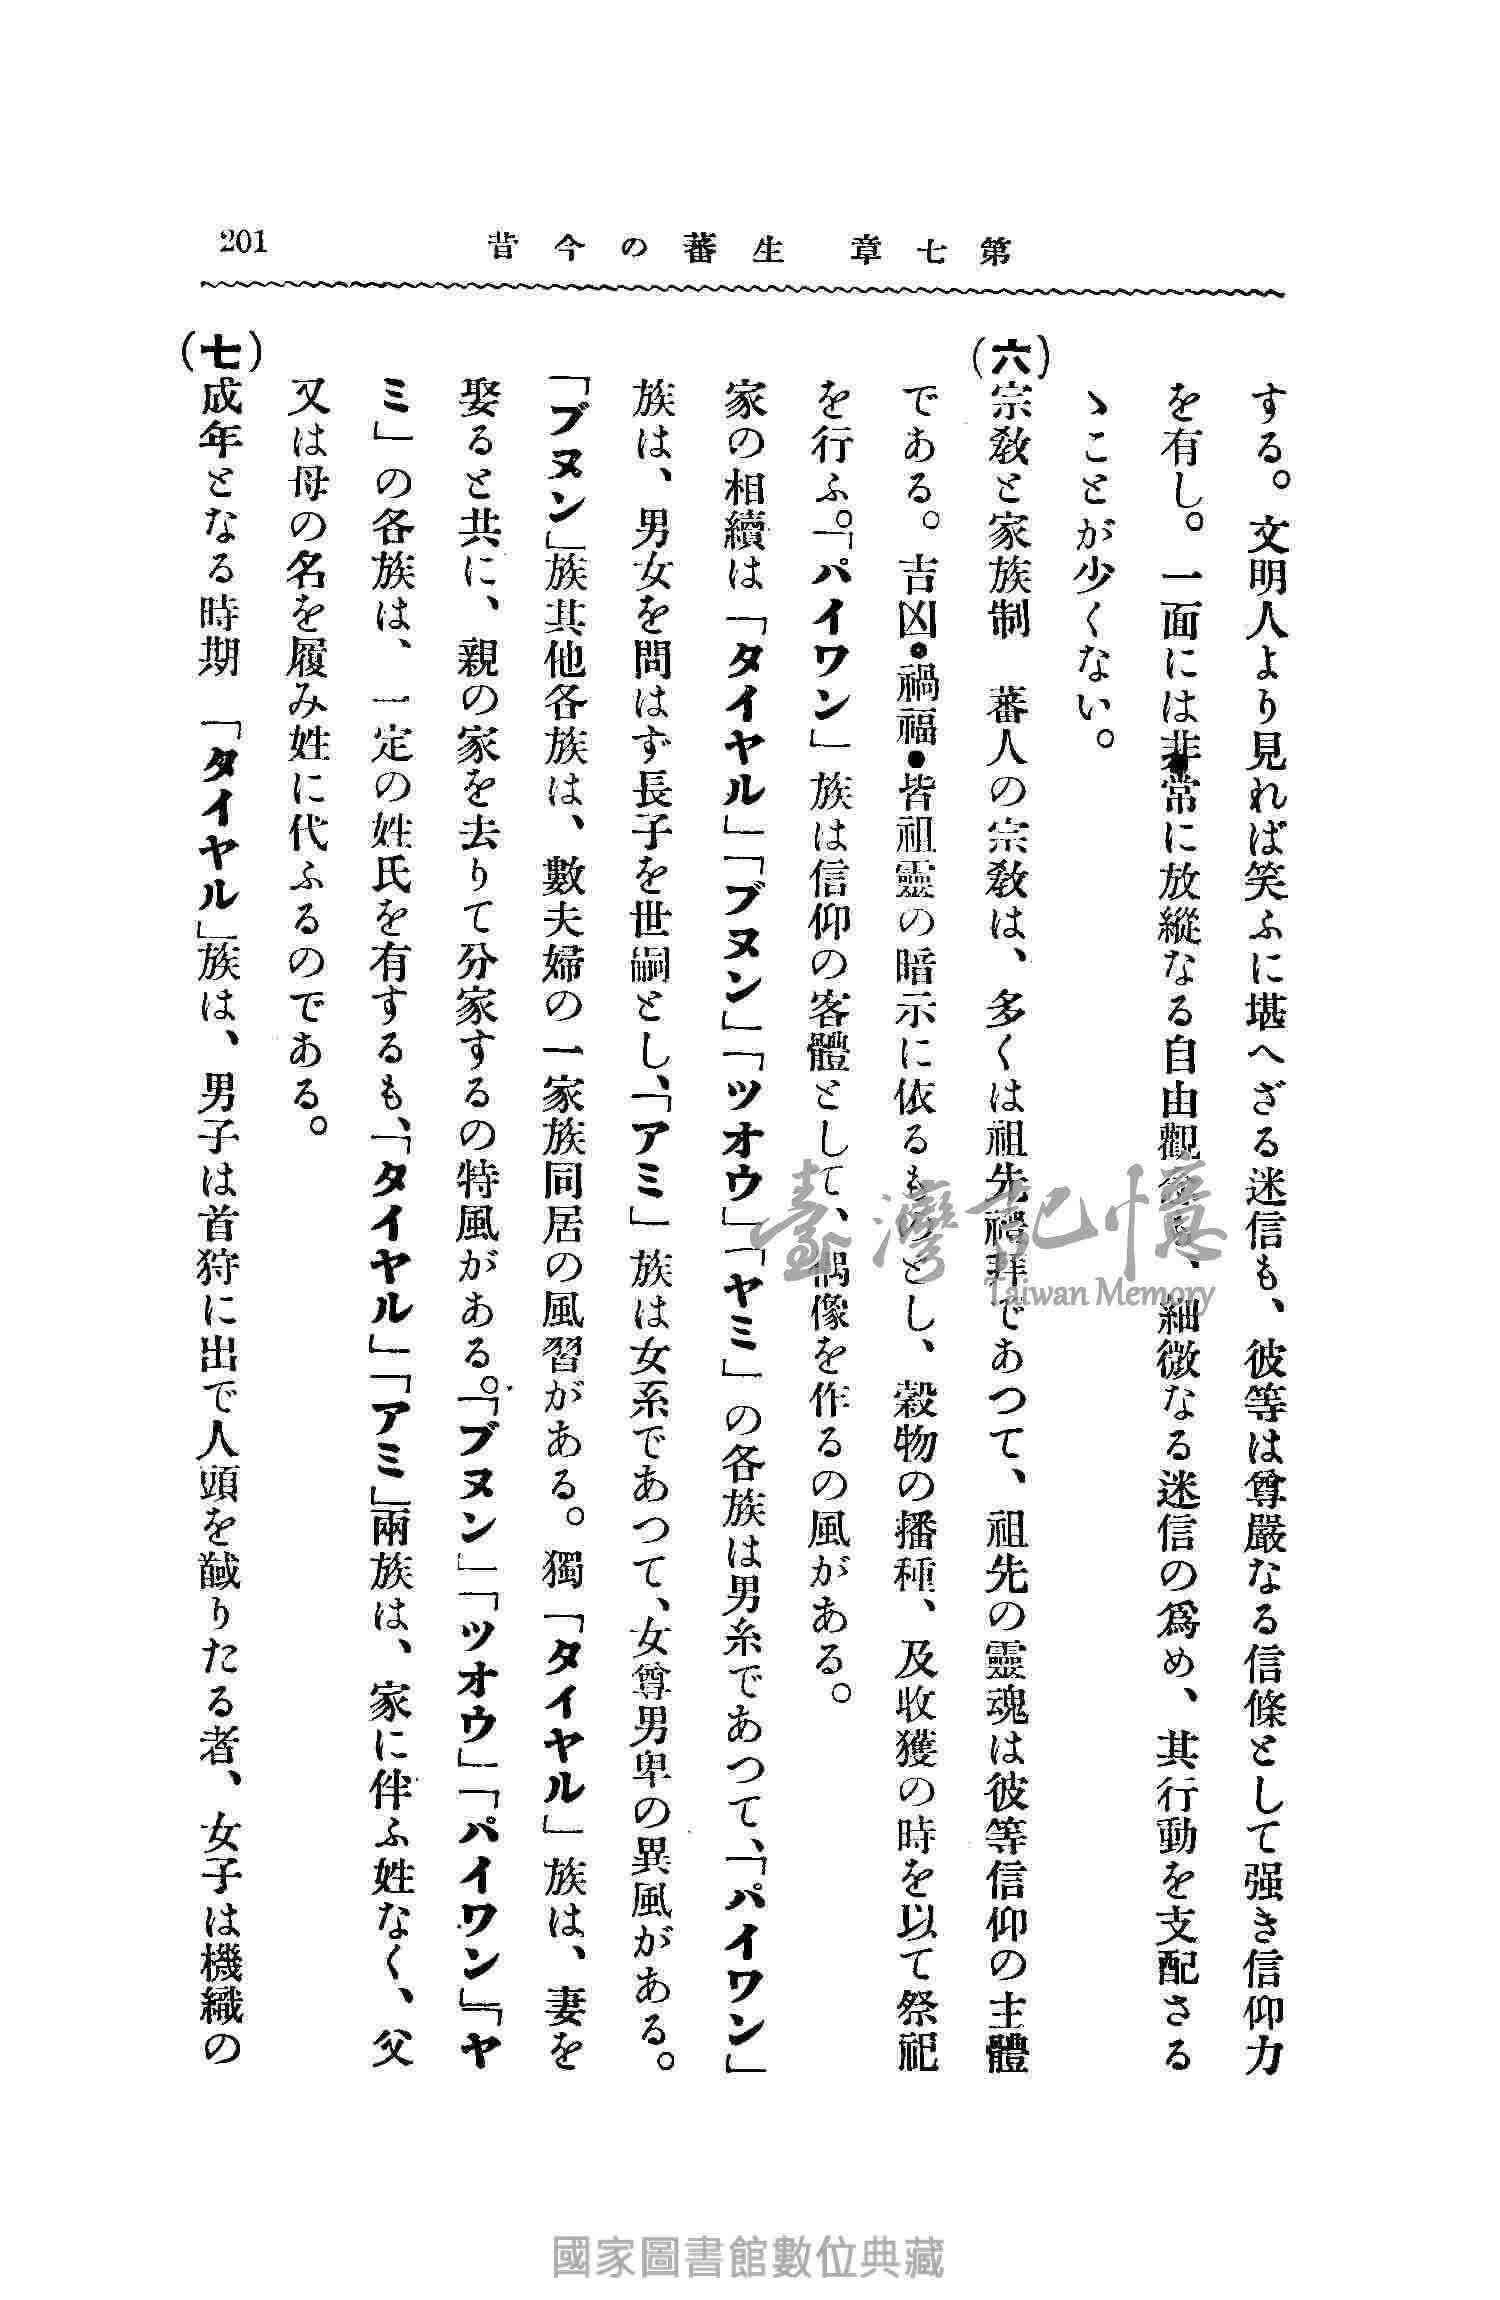 201
第七章　生蕃の今昔
する。文明人より見れば笑ふに堪へざる迷信も、彼等は尊嚴なる信條として强き信仰力
を有し。一面には非常に放縱なる自由觀　、細微なる迷信の爲め、其行動を支配さる
ゝことが少くない。
(六)宗敎と家族制　蕃人の宗敎は、多くは祖先禮拜であつて、祖先の靈魂は彼等信仰の主體
である。吉凶•禍福•皆祖靈の暗示に依るものとし、穀物の播種、及收獲の時を以て祭祀
を行ふ。「パイワン」族は信仰の客體として、偶像を作るの風がある。
家の相續は「タイヤル」「ブヌン」「ツオウ」「ヤミ」の各族は男糸であつて、「パイワン」
族は、男女を問はず長子を世嗣とし、「アミ」族は女系であつて、女尊男卑の異風がある。
「ブヌン」族其他各族は、數夫婦の一家族同居の風習がある。獨「タイヤル」族は、妻を
娶ると共に、親の家を去りて分家するの特風がある。「ブヌン」「ツオウ」「パイワン」「ヤ
ミ」の各族は、一定の姓氏を有するも、「タイヤル」「アミ」兩族は、家に伴ふ姓なく、父
又は母の名を履み姓に代ふるのである。
(七)成年となる時期　「タイヤル」族は、男子は首狩に出で人頭を馘りたる者、女子は機織の
臺灣記憶
Taiwan Memory
國家圖書館數位典藏